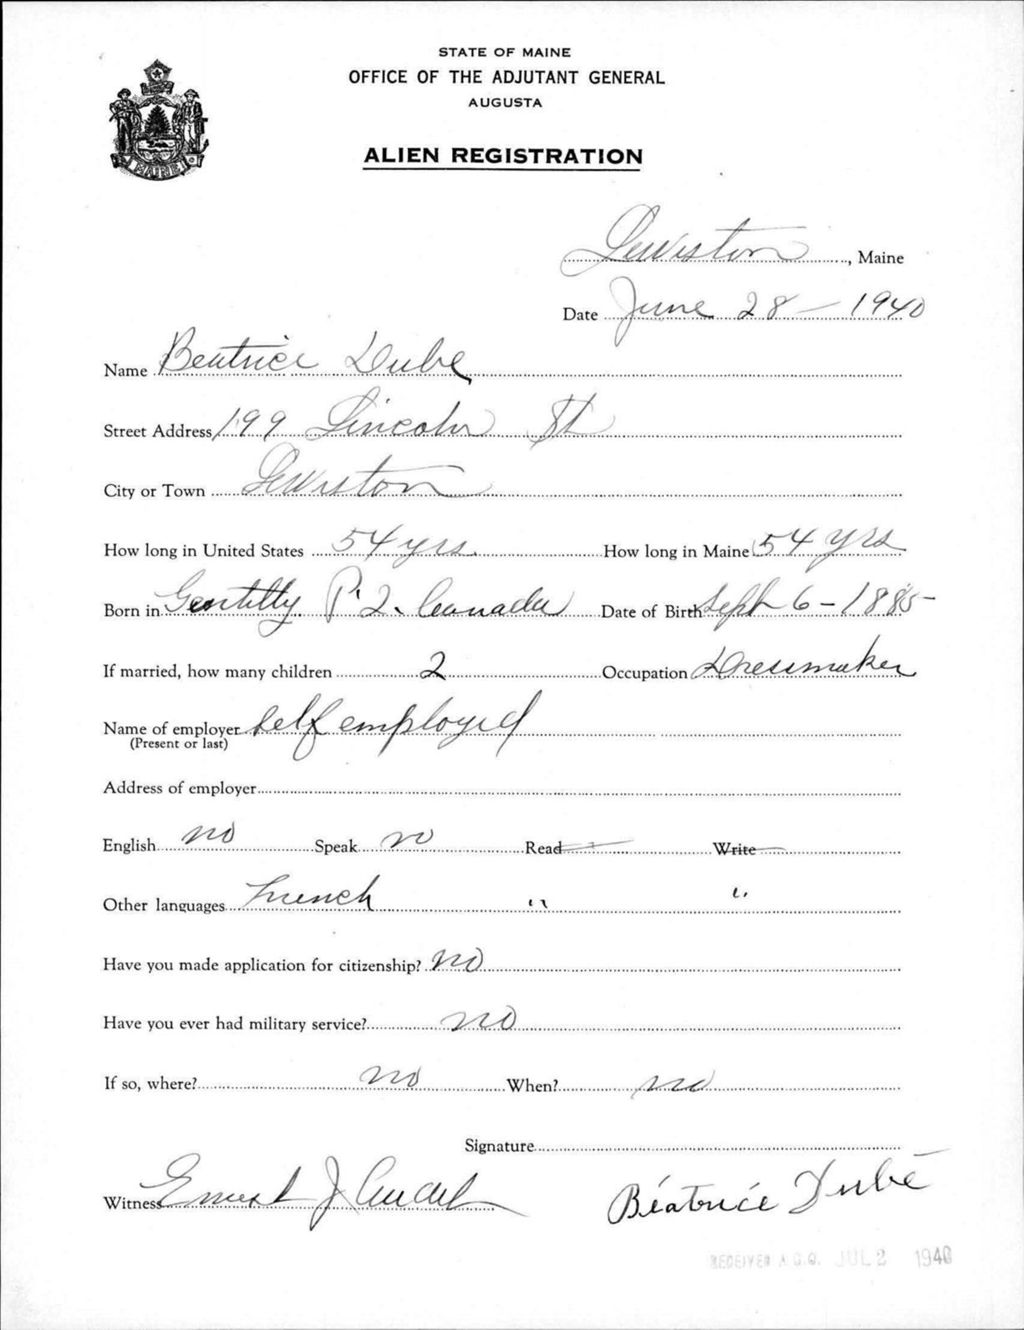 STATE OF MAINE
OFFICE OF THE ADJUTANT GENERAL
AUGUSTA
ALIEN REGISTRATION
MAINE
Lewiston, Maine
Date June 28 - 1940
Name Beatrice Dube
Street Address 199 Lincoln St
City or Town Lewiston
How long in United States 54 yrs How long in Maine 54 yrs
Born in Gentilly P.Q. Canada Date of Birth Sept 6 - 1885
If married, how many children 2 Occupation Dressmaker
Name of employer Self employed
(Present or last)
Address of employer
English no Speak no Read - Write -
Other languages French " "
Have you made application for citizenship? No
Have you ever had military service? no
If so, where? no When? no
Signature
Witness Ernest J Audet
Béatrice Dubé
RECEIVED A.G.O. JUL 2 1940